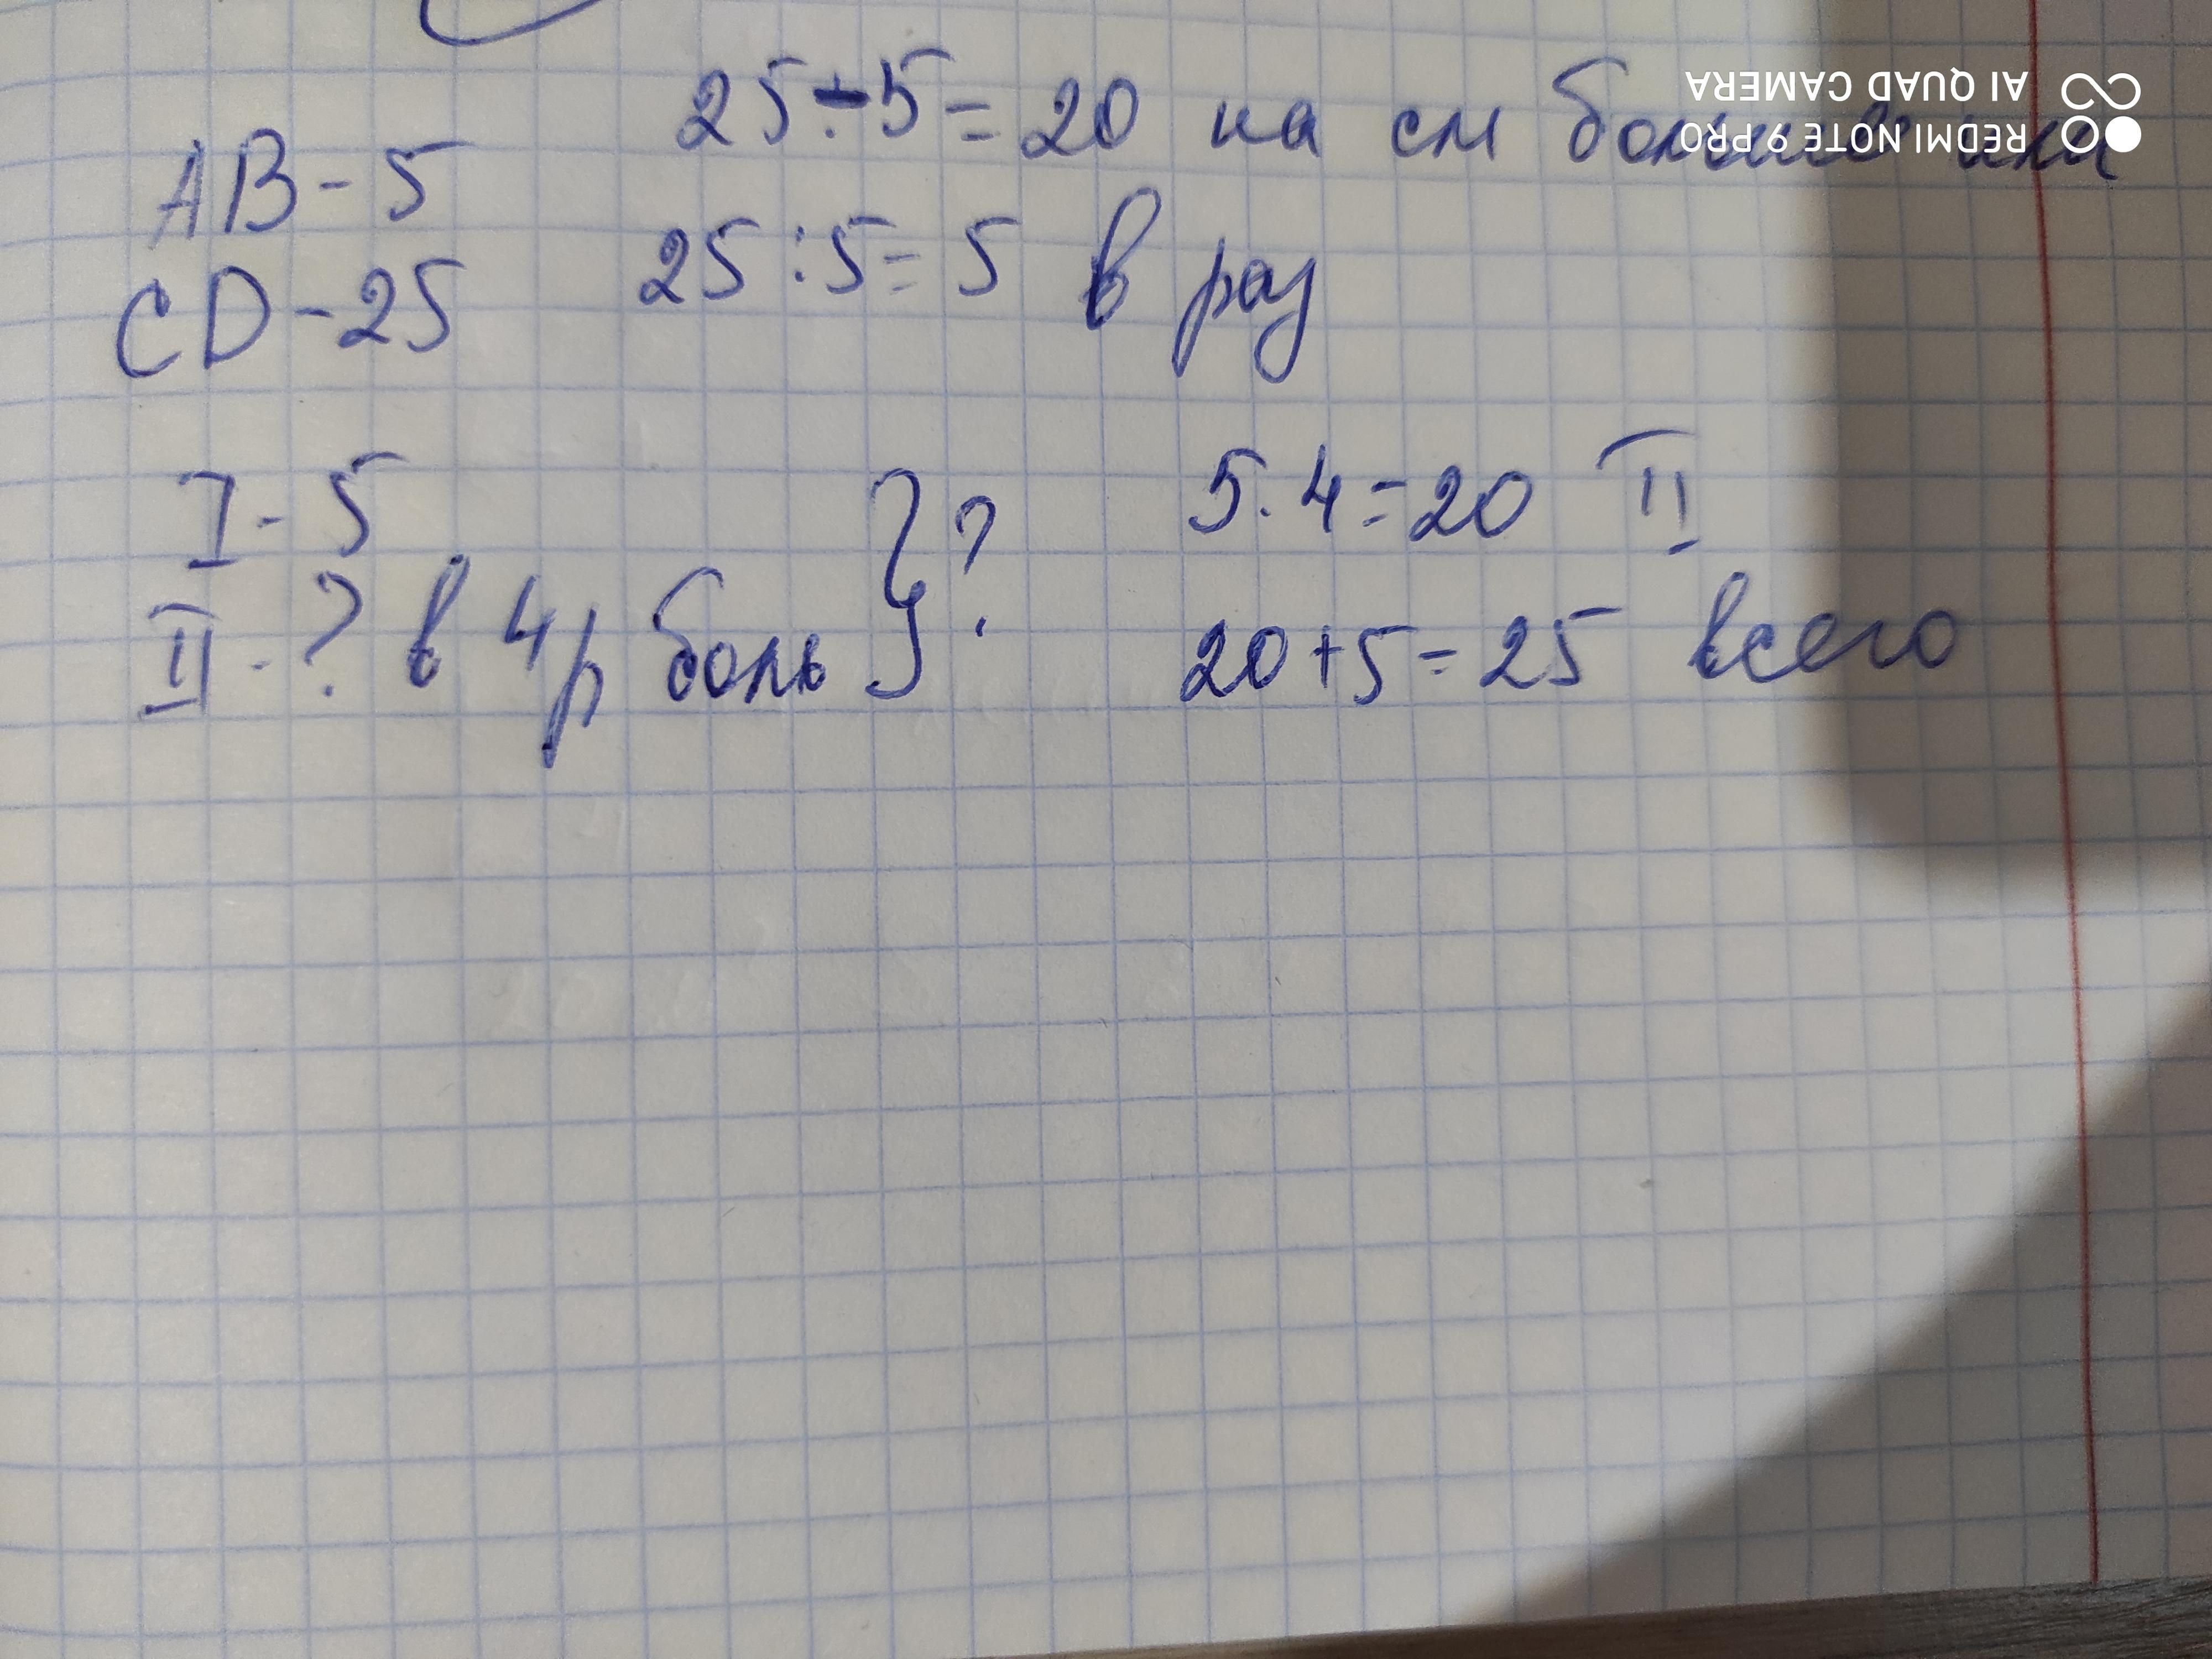 25-5=20 на см больше
AB-5
25:5=5 в раз
CD-25
I-5
}?
5.4=20 II
II-? в 4р боль
20+5=25 всего
REDMI NOTE 9 PRO
AI QUAD CAMERA